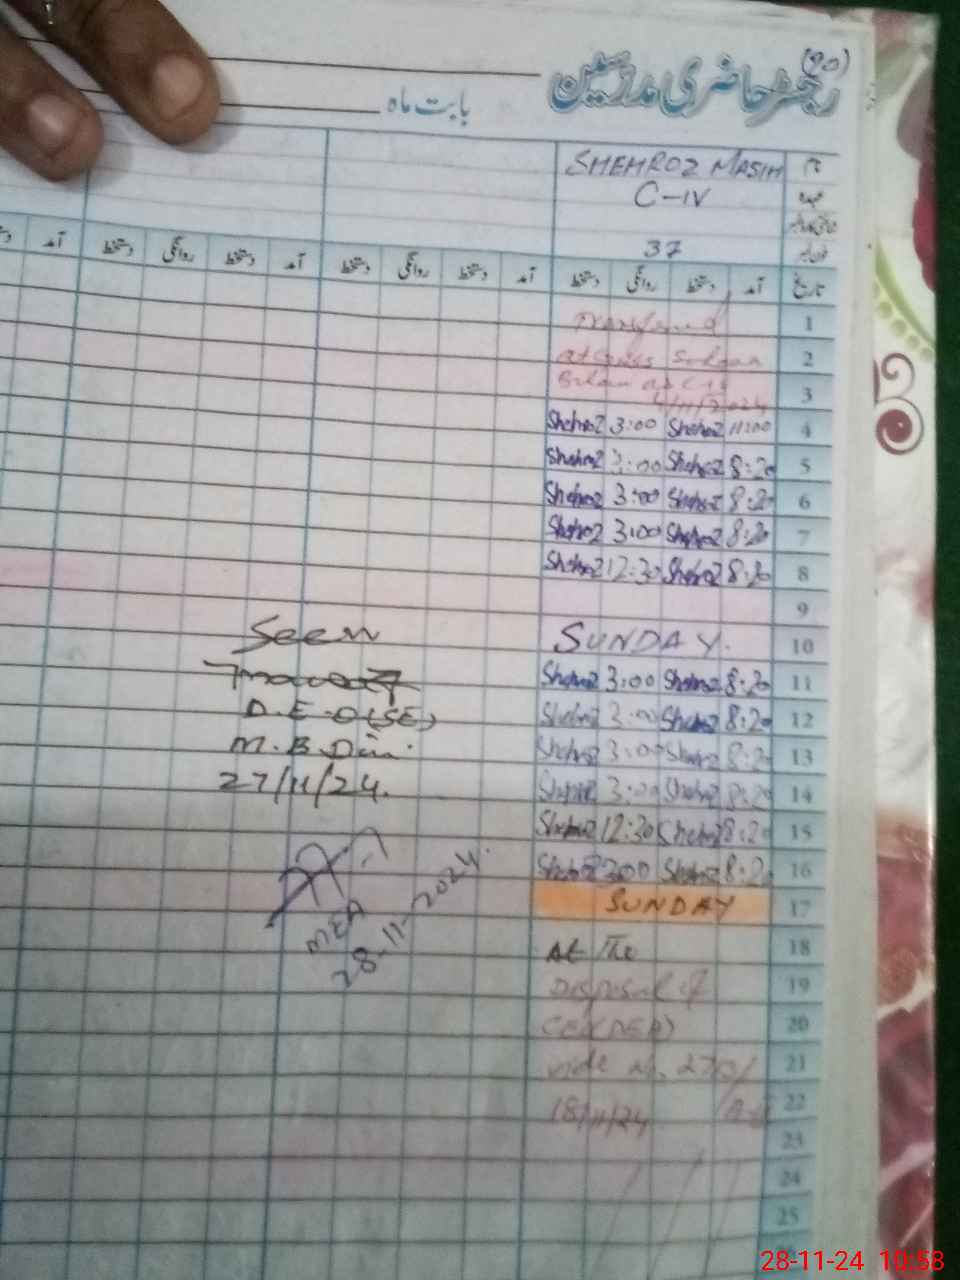 (90)
رجسٹر حاضری مدرسین
بابت ماہ
نام SHEHROZ MASIH
عہدہ C-IV
37
تاریخ آمد دستخط روانگی دستخط آمد دستخط روانگی دستخط آمد دستخط روانگی دستخط آمد
1
2
3 4/11/2024
4 11:00 Shehroz 3:00 Shehroz
5 8:20 Shehroz 3:00 Shehroz
6 8:20 Shehroz 3:00 Shehroz
7 8:20 Shehroz 3:00 Shehroz
8 8:20 Shehroz 12:30 Shehroz
9
10 SUNDAY.
11 8:20 Shehroz 3:00 Shehroz
12 8:20 Shehroz 3:00 Shehroz
13 8:20 Shehroz 3:00 Shehroz
14 8:20 Shehroz 3:00 Shehroz
15 8:20 Shehroz 12:30 Shehroz
16 8:20 Shehroz 3:00 Shehroz
17 SUNDAY
18 At The
19 Disposal of
20
21 vide no. 
22 18/11/24
23
24
25
Seen
D.E.O (SE)
M.B.Din.
27/11/24.
MEA
28-11-2024.
28-11-24 10:58